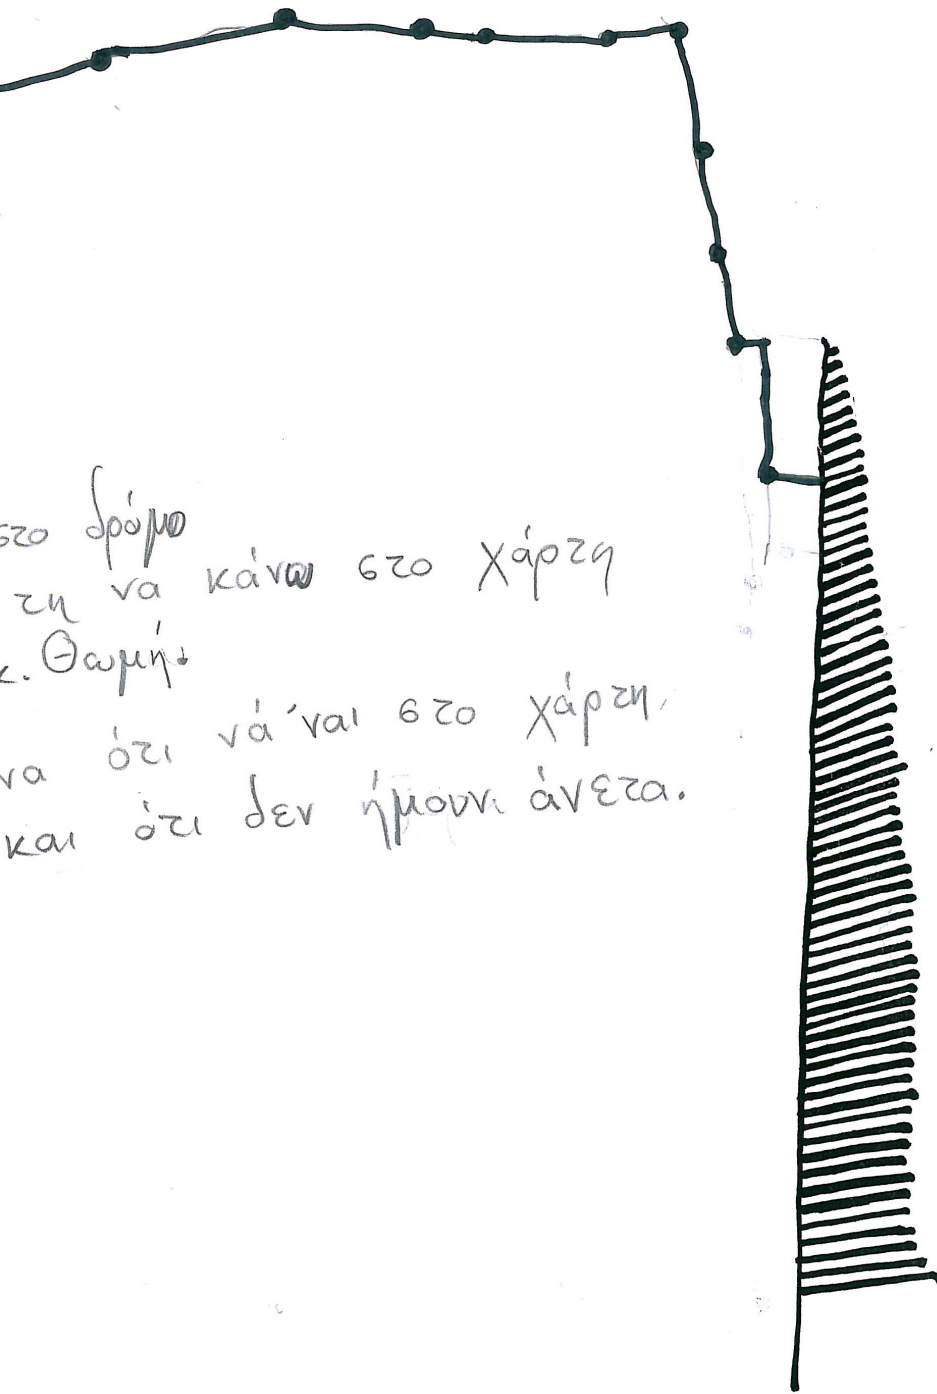 στο δρόμο
τη να κάνω στο χάρτη
κ. Θωμή
να ότι νά'ναι στο χάρτη.
και ότι δεν ήμουν άνετα.